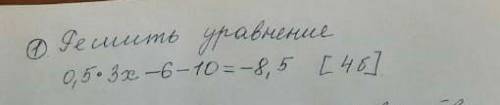 ① Решить уравнение
0,5·3x-6-10=-8,5 [4б]